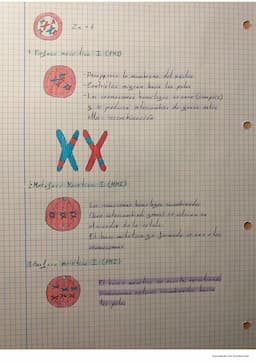 2n = 4
1. Profase meiótica I (PMI)
- Desaparece la membrana del núcleo
- Centriolos migran hacia los polos
- Los cromosomas homólogos se unen (sinapsis)
y se produce intercambio de genes entre
ellos: recombinación
2. Metafase Meiótica I (MMI)
Los cromosomas homólogos recombinados
(han intercambiado genes) se colocan en
el de la célula.
El huso mitótico ya formado se une a los
cromosomas
Anafase meiótica I (AMI)
El huso mitótico se acorta
cromosomas hacia
los polos